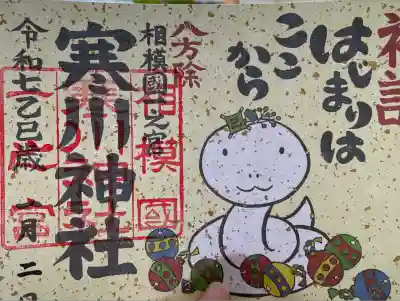 初詣
はじまりは
ここ
から
八方除
相模國一之宮
寒川神社
令和七乙巳歳 一月二日
相模國
一宮